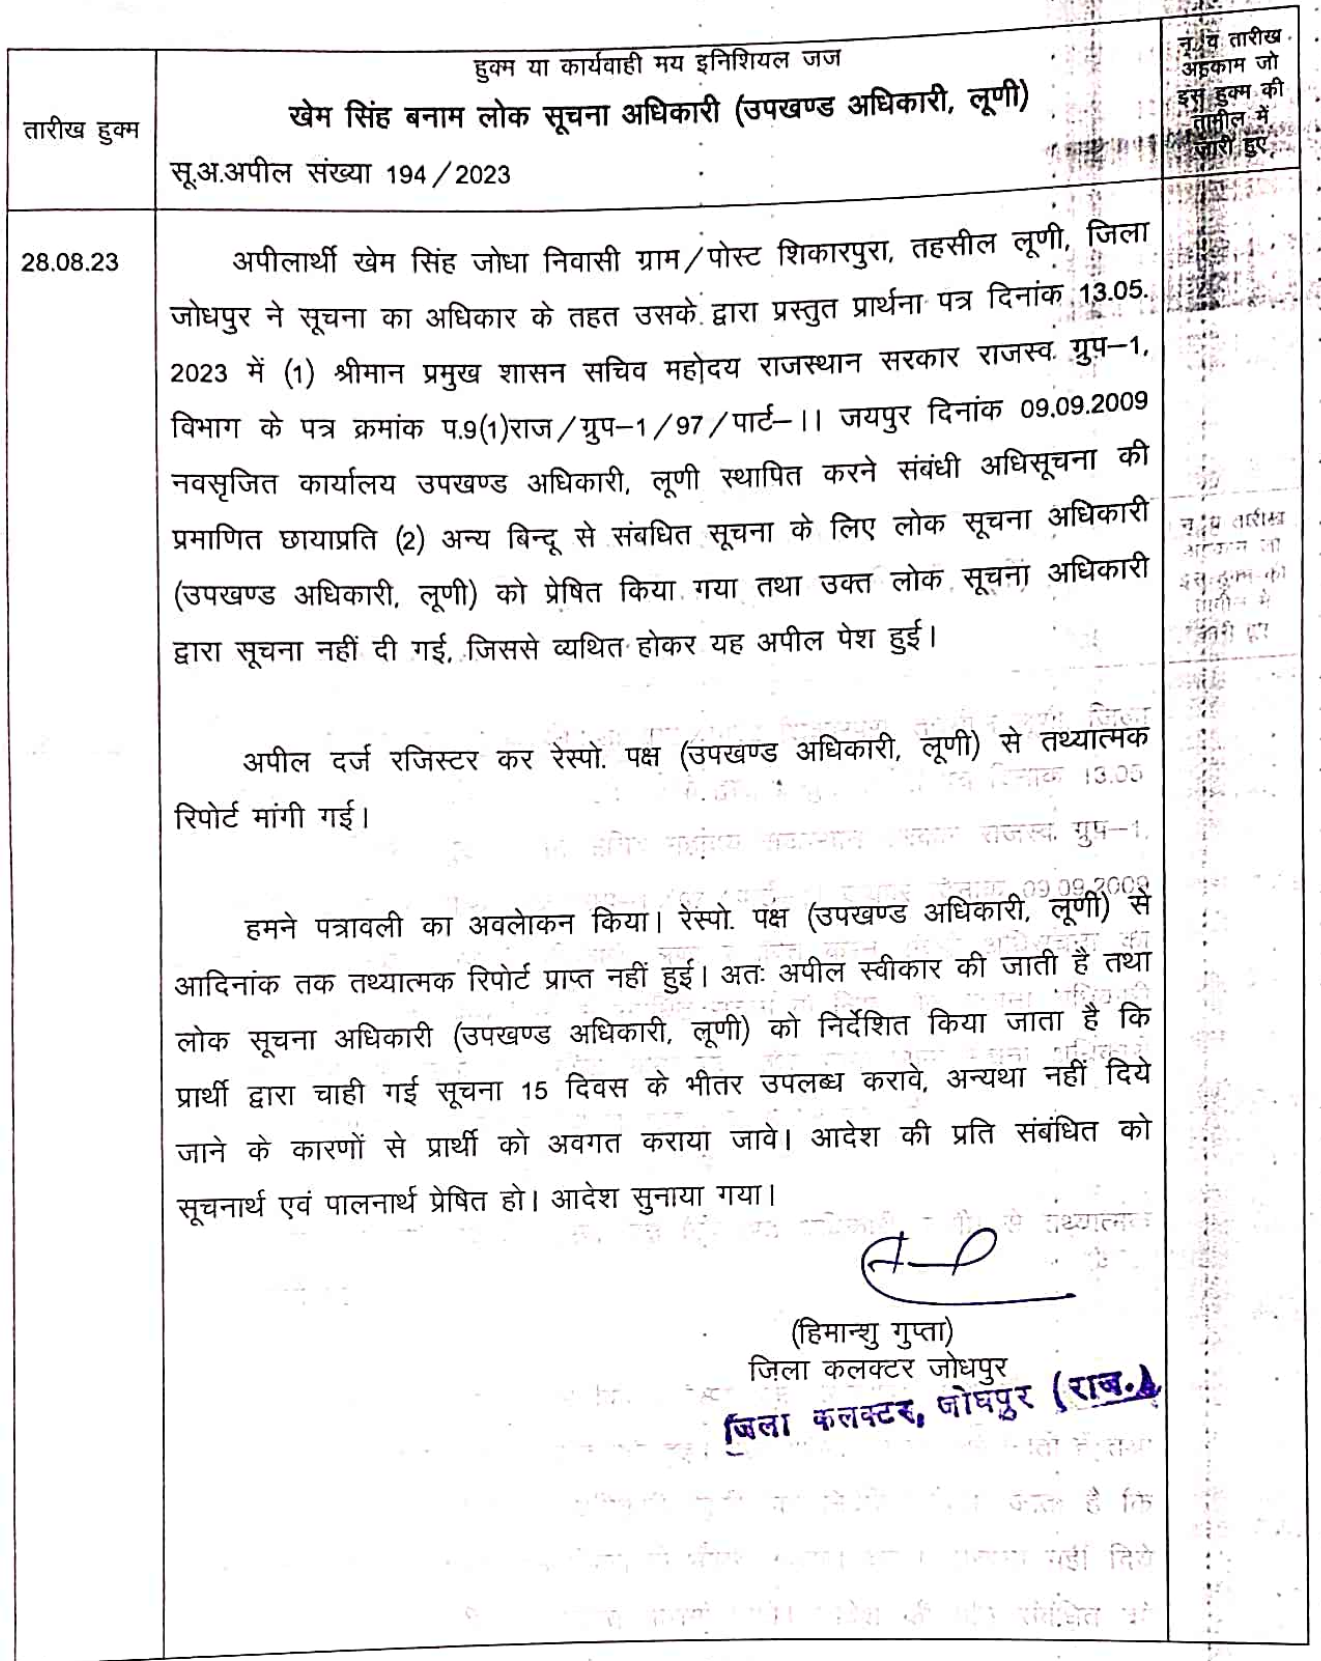 हुक्म या कार्यवाही मय इनिशियल जज
खेम सिंह बनाम लोक सूचना अधिकारी (उपखण्ड अधिकारी, लूणी)
सू.अ.अपील संख्या 194/2023
तारीख हुक्म
न. व तारीख
अहकाम जो
इस हुक्म की
तामील में
जारी हुए
28.08.23
अपीलार्थी खेम सिंह जोधा निवासी ग्राम/पोस्ट शिकारपुरा, तहसील लूणी, जिला
जोधपुर ने सूचना का अधिकार के तहत उसके द्वारा प्रस्तुत प्रार्थना पत्र दिनांक 13.05.
2023 में (1) श्रीमान प्रमुख शासन सचिव महोदय राजस्थान सरकार राजस्व ग्रुप–1,
विभाग के पत्र क्रमांक प.9(1)राज/ग्रुप–1/97/पार्ट–।। जयपुर दिनांक 09.09.2009
नवसृजित कार्यालय उपखण्ड अधिकारी, लूणी स्थापित करने संबंधी अधिसूचना की
प्रमाणित छायाप्रति (2) अन्य बिन्दू से संबधित सूचना के लिए लोक सूचना अधिकारी
(उपखण्ड अधिकारी, लूणी) को प्रेषित किया गया तथा उक्त लोक सूचना अधिकारी
द्वारा सूचना नहीं दी गई, जिससे व्यथित होकर यह अपील पेश हुई।
अपील दर्ज रजिस्टर कर रेस्पो. पक्ष (उपखण्ड अधिकारी, लूणी) से तथ्यात्मक
रिपोर्ट मांगी गई।
हमने पत्रावली का अवलोकन किया। रेस्पो. पक्ष (उपखण्ड अधिकारी, लूणी) से
आदिनांक तक तथ्यात्मक रिपोर्ट प्राप्त नहीं हुई। अतः अपील स्वीकार की जाती है तथा
लोक सूचना अधिकारी (उपखण्ड अधिकारी, लूणी) को निर्देशित किया जाता है कि
प्रार्थी द्वारा चाही गई सूचना 15 दिवस के भीतर उपलब्ध करावे, अन्यथा नहीं दिये
जाने के कारणों से प्रार्थी को अवगत कराया जावे। आदेश की प्रति संबंधित को
सूचनार्थ एवं पालनार्थ प्रेषित हो। आदेश सुनाया गया।
(हिमान्शु गुप्ता)
जिला कलक्टर जोधपुर
जिला कलक्टर, जोधपुर (राज.)